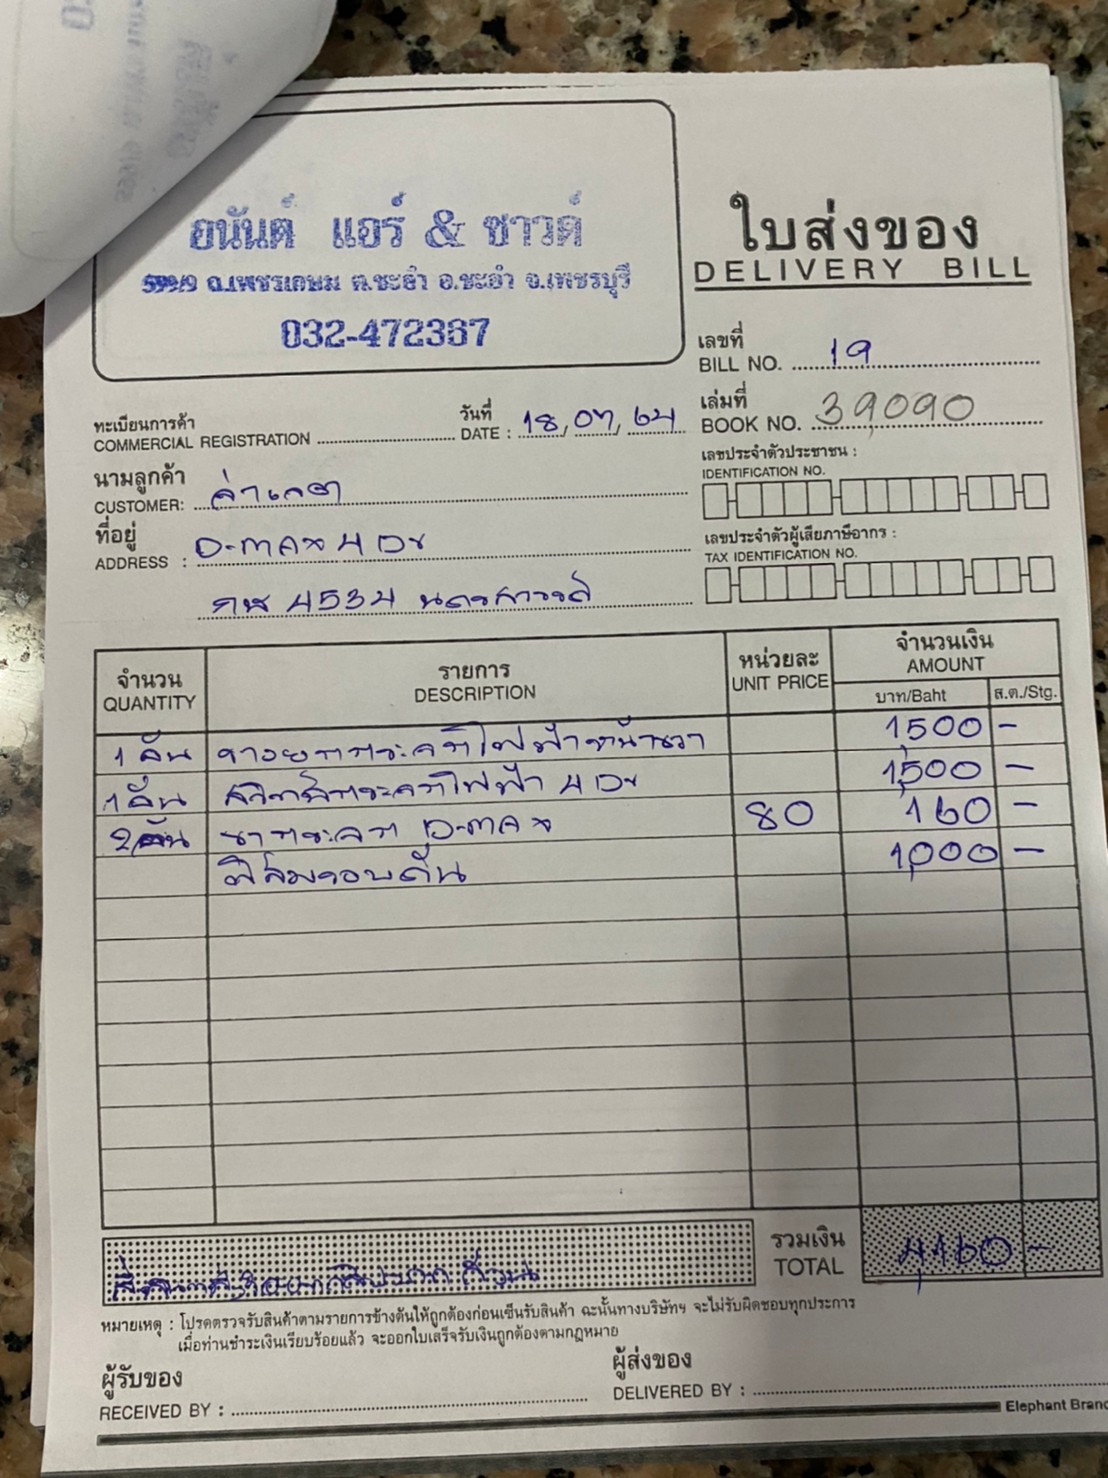 อนันต์ แอร์ & ซาวด์
599/9 ถ.เพชรเกษม ต.ชะอำ อ.ชะอำ จ.เพชรบุรี
032-472367
ใบส่งของ
DELIVERY BILL
เลขที่
BILL NO. 19
เล่มที่
BOOK NO. 39090
ทะเบียนการค้า
COMMERCIAL REGISTRATION
วันที่
DATE : 18, 07, 64
เลขประจำตัวประชาชน :
IDENTIFICATION NO.
นามลูกค้า
CUSTOMER:
ที่อยู่
ADDRESS : D-max 4 Dr
4534 นครสวรรค์
เลขประจำตัวผู้เสียภาษีอากร :
TAX IDENTIFICATION NO.
จำนวน
QUANTITY
รายการ
DESCRIPTION
หน่วยละ
UNIT PRICE
จำนวนเงิน
AMOUNT
บาท/Baht
ส.ต./Stg.
1 อัน 1,500 -
1 อัน สวิทซ์กระจกไฟฟ้า 4 Dr 1,500 -
2 อัน D-max 80 160 -
ฟิล์มรอบคัน 1,000 -
รวมเงิน
TOTAL 4,160 -
หมายเหตุ : โปรดตรวจรับสินค้าตามรายการข้างต้นให้ถูกต้องก่อนเซ็นรับสินค้า ฉะนั้นทางบริษัทฯ จะไม่รับผิดชอบทุกประการ
เมื่อท่านชำระเงินเรียบร้อยแล้ว จะออกใบเสร็จรับเงินถูกต้องตามกฎหมาย
ผู้รับของ
RECEIVED BY :
ผู้ส่งของ
DELIVERED BY :
Elephant Brand